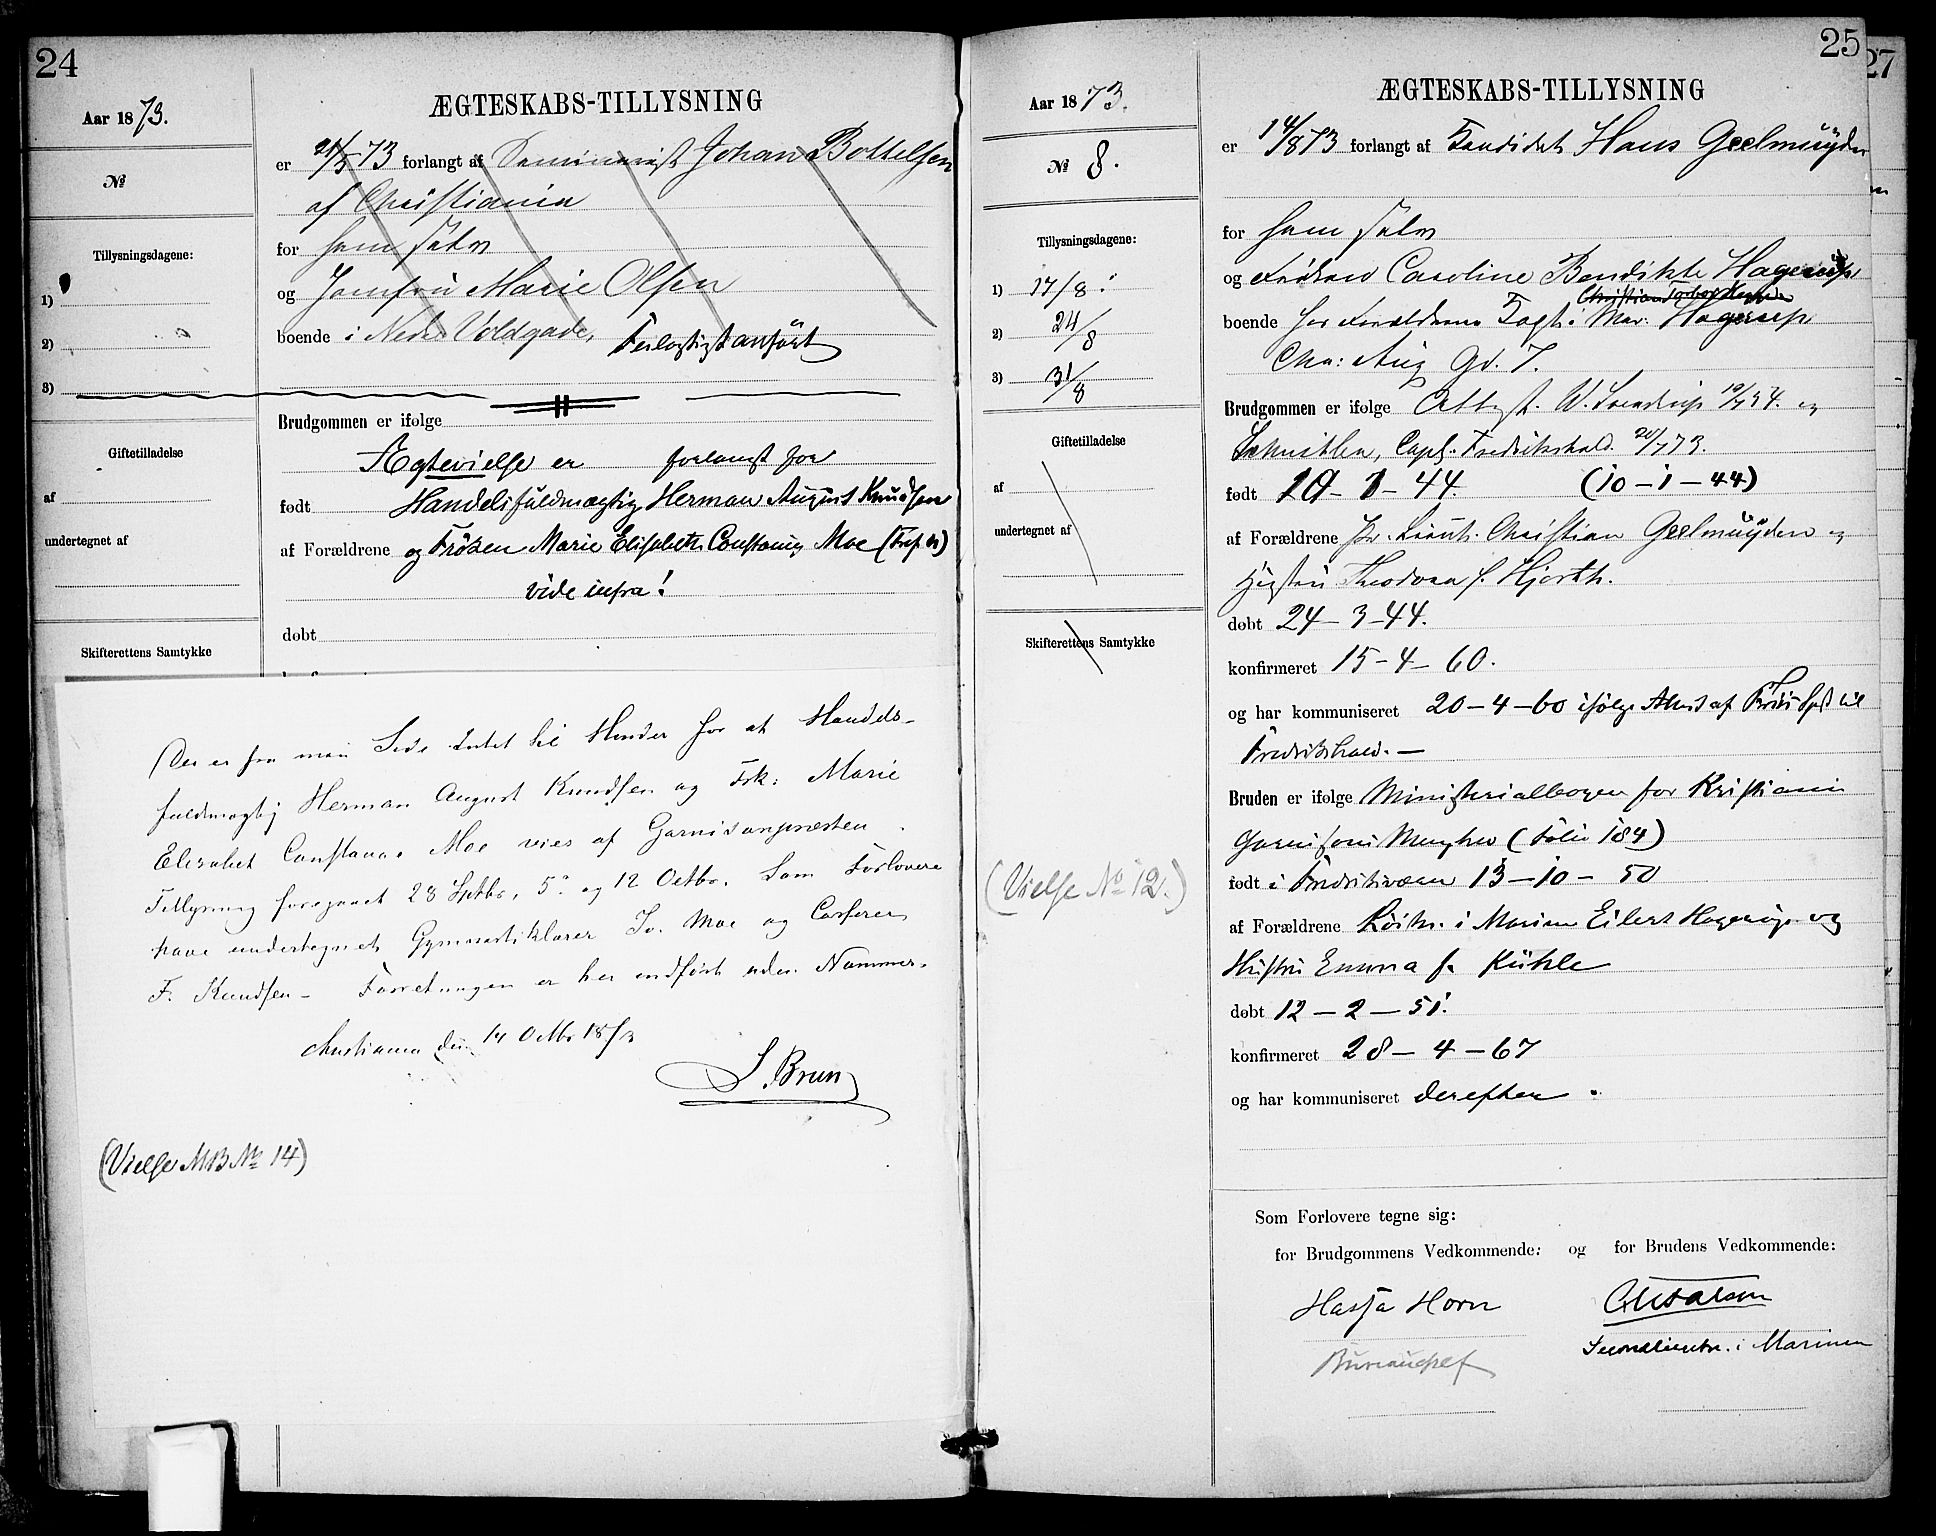 24
Aar 1873.
№
Tillysningsdagene:
1)
2)
3)
Giftetilladelse
af
undertegnet af
Skifterettens Samtykke
ÆGTESKABS-TILLYSNING
er 73 forlangt af Seminarist Johan Bottelsen
af Christiania
for ham selv
og Jomfru Marie Olsen
boende i Nedre Voldgade, Feilagtigt anført
Brudgommen er ifølge
Ægtevielse er forlangt for
født Handelsfuldmægtig Herman August Knudsen
af Forældrene og Frøken Marie Elisabeth Constance Moe
vide infra!
døbt
Der er fra min Side Intet til Hinder for at Handels-
fuldmægtig Herman August Knudsen og Frk: Marie
Elisabet Constance Moe vies af Garnisonspræsten.
Tillysning foregaaet 28 Septbr, 5 og 12 Octbr. Som Forlovere
have undertegnet Gymnastiklærer Moe og
F. Knudsen - Forretningen er her indført uden Nummer.
Christiania den 14 Octbr 1873
S. Brun
(Vielse MB № 14)
25
27
Aar 1873.
№ 8.
Tillysningsdagene:
1) 17/8
2) 24/8
3) 31/8
Giftetilladelse
af
undertegnet af
Skifterettens Samtykke
(Vielse No 12.)
ÆGTESKABS-TILLYSNING
er 14/8 73 forlangt af Kandidat Hans Geelmuyden
for ham selv
og Frøken Caroline Bendikte Hagerup
boende hos Forældrene Fogt i Mar. Hagerup
Chr: Aug Gd. 7.
Brudgommen er ifølge Attest. W. 54. og
Schnitler, Capl. Fredrikshald. 73.
født 10-1-44. (10-1-44)
af Forældrene Pr. Lieut. Christian Geelmuyden og
Hustru Theodora f. Hjorth.
døbt 24-3-44.
konfirmeret 15-4-60.
og har kommuniseret 20-4-60 ifølge Attest af til
Fredrikshald. —
Bruden er ifølge Ministerialbogen for Kristiania
Garnisons Menighed (Folio 184)
født i Fredriksværn 13-10-50
af Forældrene i Marinen Eilert Hagerup og
Hustru Emma f. Kühle
døbt 12-2-51.
konfirmeret 28-4-67
og har kommuniseret derefter.
Som Forlovere tegne sig:
for Brudgommens Vedkommende: og for Brudens Vedkommende:
Horn
Bureauchef
Secondlieutn. i Marinen